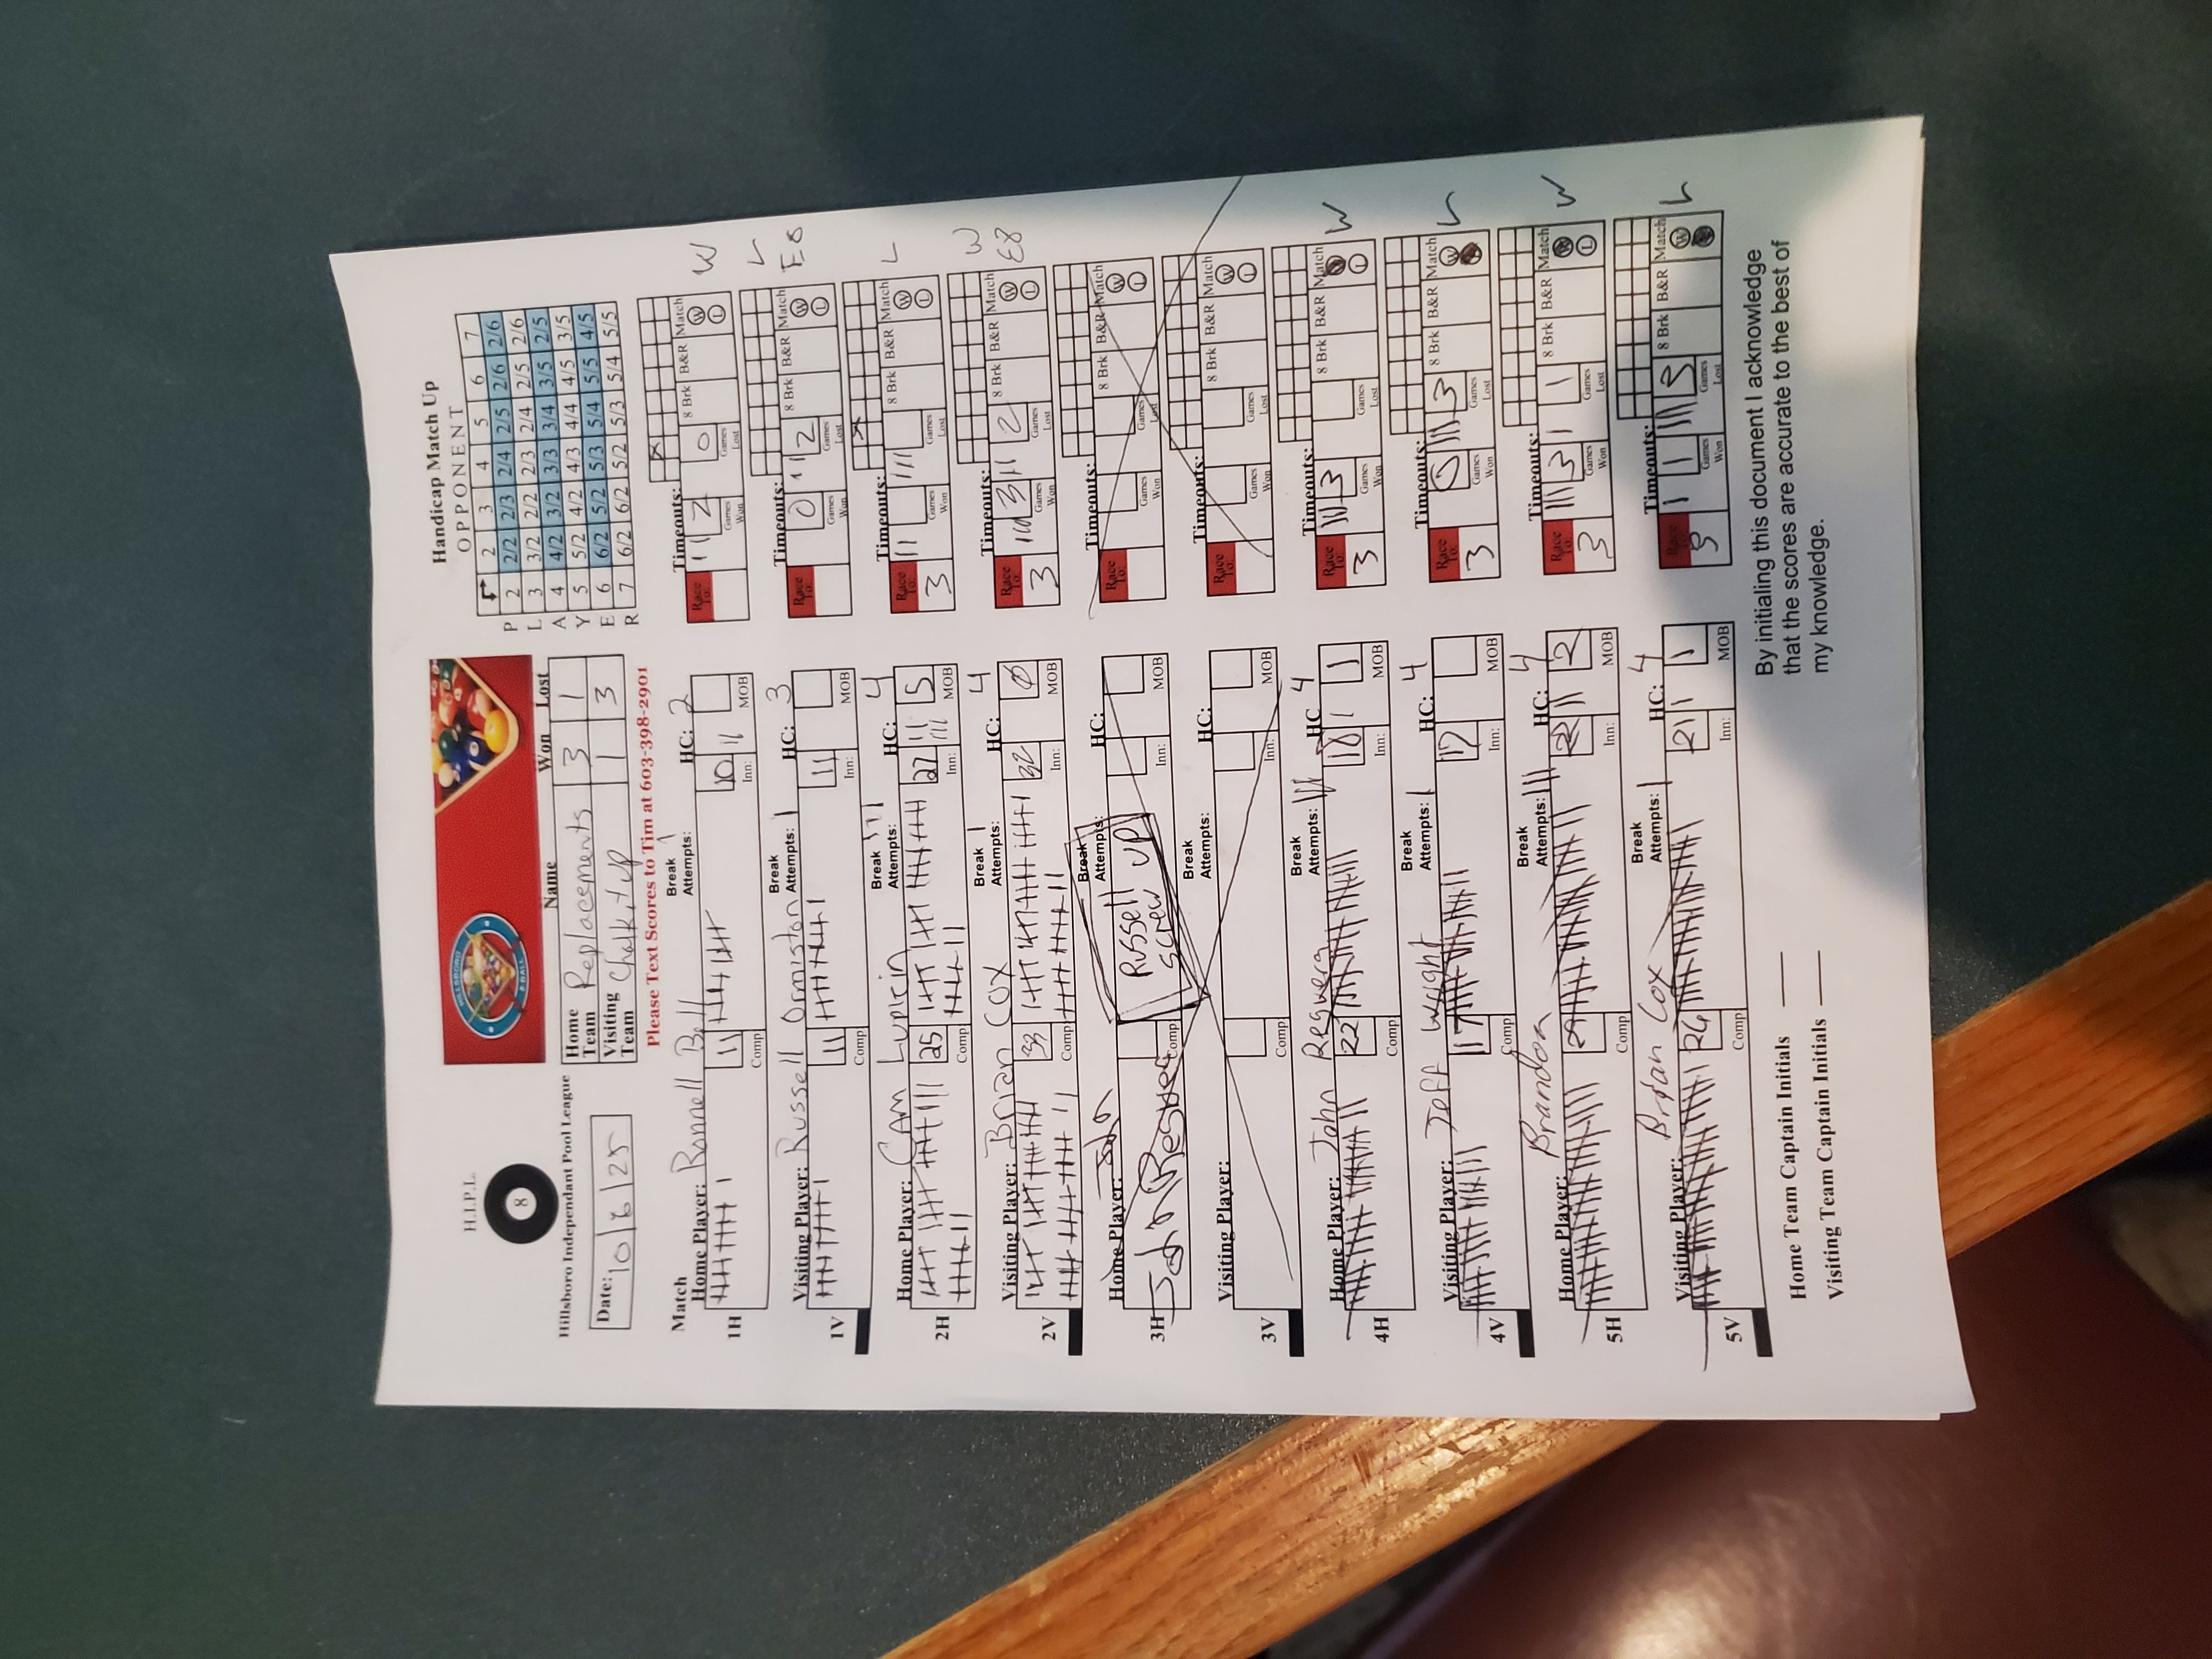 H.I.P.L.
8
HILLSBORO
8-BALL
Hillsboro Independant Pool League
Date: 10/6/25
Name Won Lost
Home Team Replacements 3 1
Visiting Team Chalk it up 1 3
Please Text Scores to Tim at 603-398-2901
Handicap Match Up
OPPONENT
2 3 4 5 6 7
P 2 2/2 2/3 2/4 2/5 2/6 2/6
L 3 3/2 2/2 2/3 2/4 2/5 2/6
A 4 4/2 3/2 3/3 3/4 3/5 2/5
Y 5 5/2 4/2 4/3 4/4 4/5 3/5
E 6 6/2 5/2 5/3 5/4 5/5 4/5
R 7 6/2 6/2 5/2 5/3 5/4 5/5
Match
Home Player: Ronnell Bell Break Attempts: 1 HC: 2 Timeouts: X W
1H 11 Comp 10 Inn: 11 MOB Race To: 11 2 Games Won 0 Games Lost 8 Brk B&R Match W L
Visiting Player: Russell Ormiston Break Attempts: 1 HC: 3 Timeouts: L E8
1V 11 Comp 11 Inn: MOB Race To: 0 Games Won 11 2 Games Lost 8 Brk B&R Match W L
Home Player: Cam Lupien Break Attempts: HC: 4 Timeouts: X L
2H 25 Comp 27 Inn: 5 MOB Race To: 3 11 Games Won 111 Games Lost 8 Brk B&R Match W L
Visiting Player: Brian Cox Break Attempts: 1 HC: 4 Timeouts: W E8
2V 33 Comp 32 Inn: 0 MOB Race To: 3 111 3 Games Won 11 2 Games Lost 8 Brk B&R Match W L
Home Player: John Break Attempts: HC: Timeouts:
3H Comp RUSSell screw UP Inn: MOB Race To: Games Won Games Lost 8 Brk B&R Match W L
Visiting Player: Break Attempts: HC: Timeouts:
3V Comp Inn: MOB Race To: Games Won Games Lost 8 Brk B&R Match W L
Home Player: John Reguera Break Attempts: 111 HC 4 Timeouts: W
4H 22 Comp Inn: 1 MOB Race To: 3 111 3 Games Won Games Lost 8 Brk B&R Match L
Visiting Player: Jeff Wright Break Attempts: 1 HC: 4 Timeouts: L
4V 17 Comp 17 Inn: MOB Race To: 3 0 Games Won 111 3 Games Lost 8 Brk B&R Match W
Home Player: Brandon Break Attempts: 111 HC: 4 Timeouts: W
5H Comp Inn: 2 MOB Race To: 3 111 3 Games Won 1 1 Games Lost 8 Brk B&R Match W L
Visiting Player: Brian Cox Break Attempts: 1 HC: 4 Timeouts: L
5V 24 Comp 21 Inn: 1 1 MOB Race To: 3 1 1 Games Won 111 3 Games Lost 8 Brk B&R Match W
Home Team Captain Initials
Visiting Team Captain Initials
By initialing this document I acknowledge
that the scores are accurate to the best of
my knowledge.